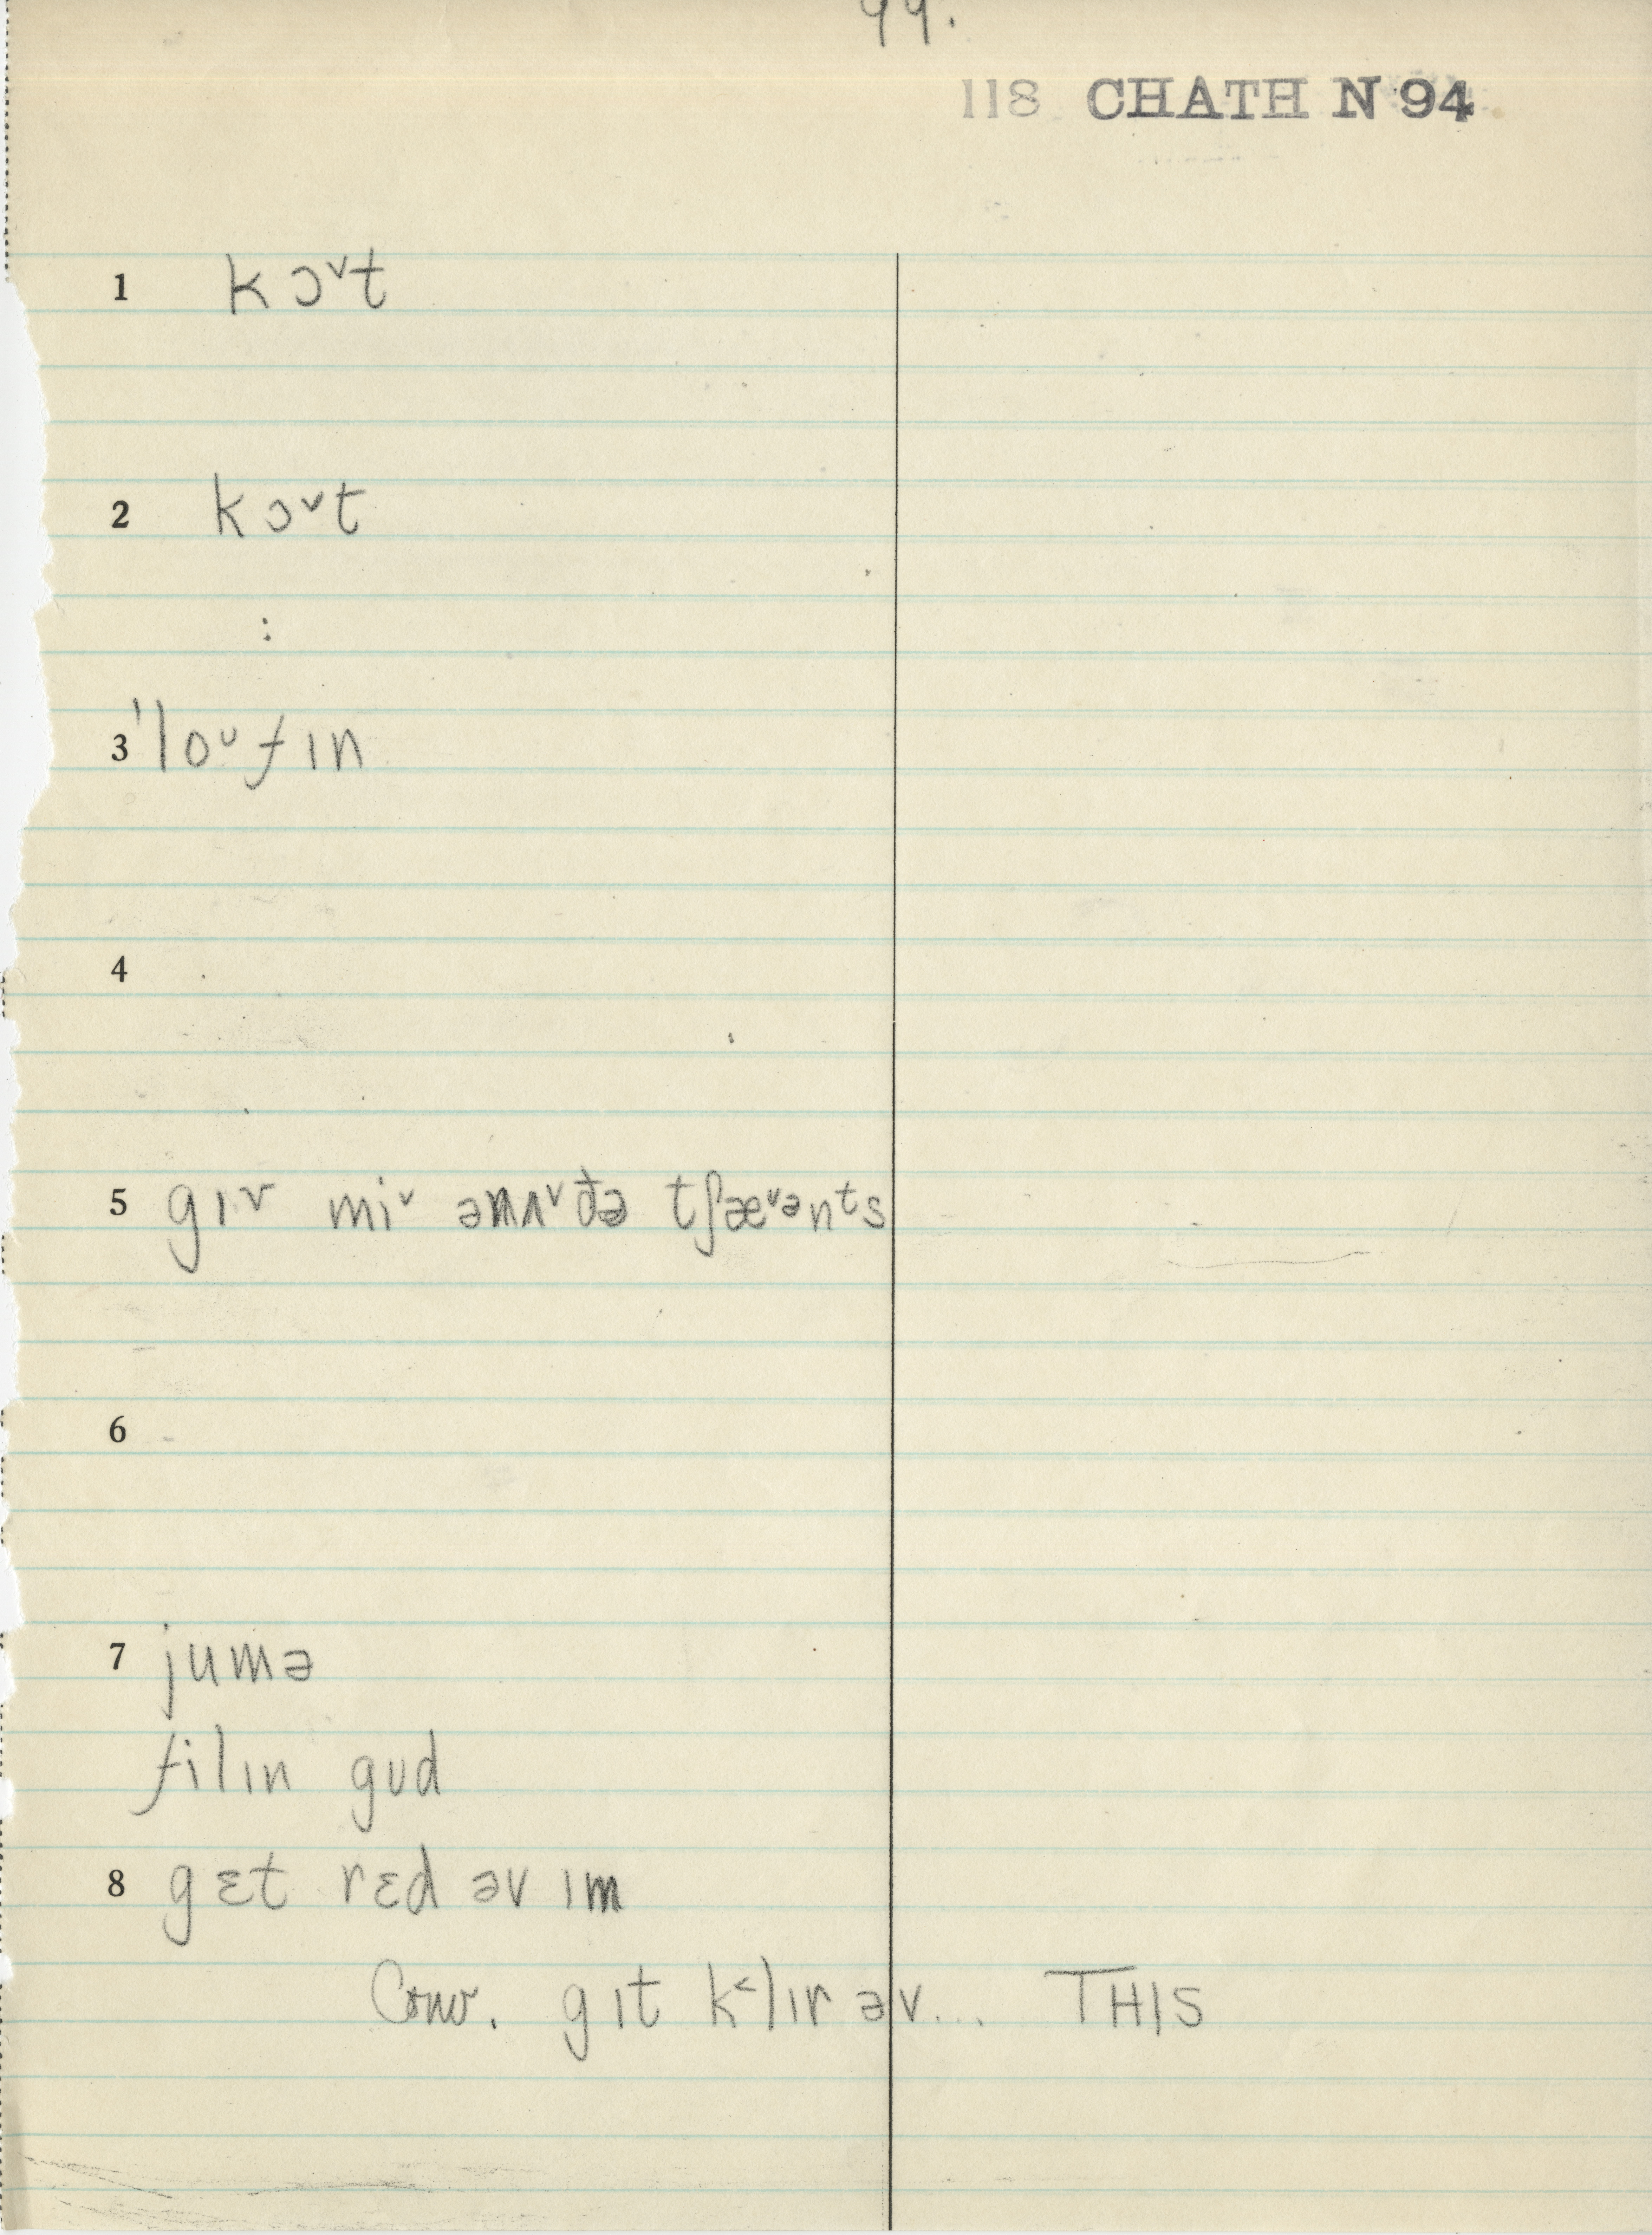 99.
118 CHATH N 94
1 kɔ˅t
2 kɔ˅t
:
3 ˈloᴜfɪn
4
5 gɪv mi˅ ənʌ˅ðə tʃæ˅ənᵗs
6
7 jumə
filɪn gʊd
8 gɛt rɛd əv ɪm
Conv. gɪt k˂lɪr əv... THIS